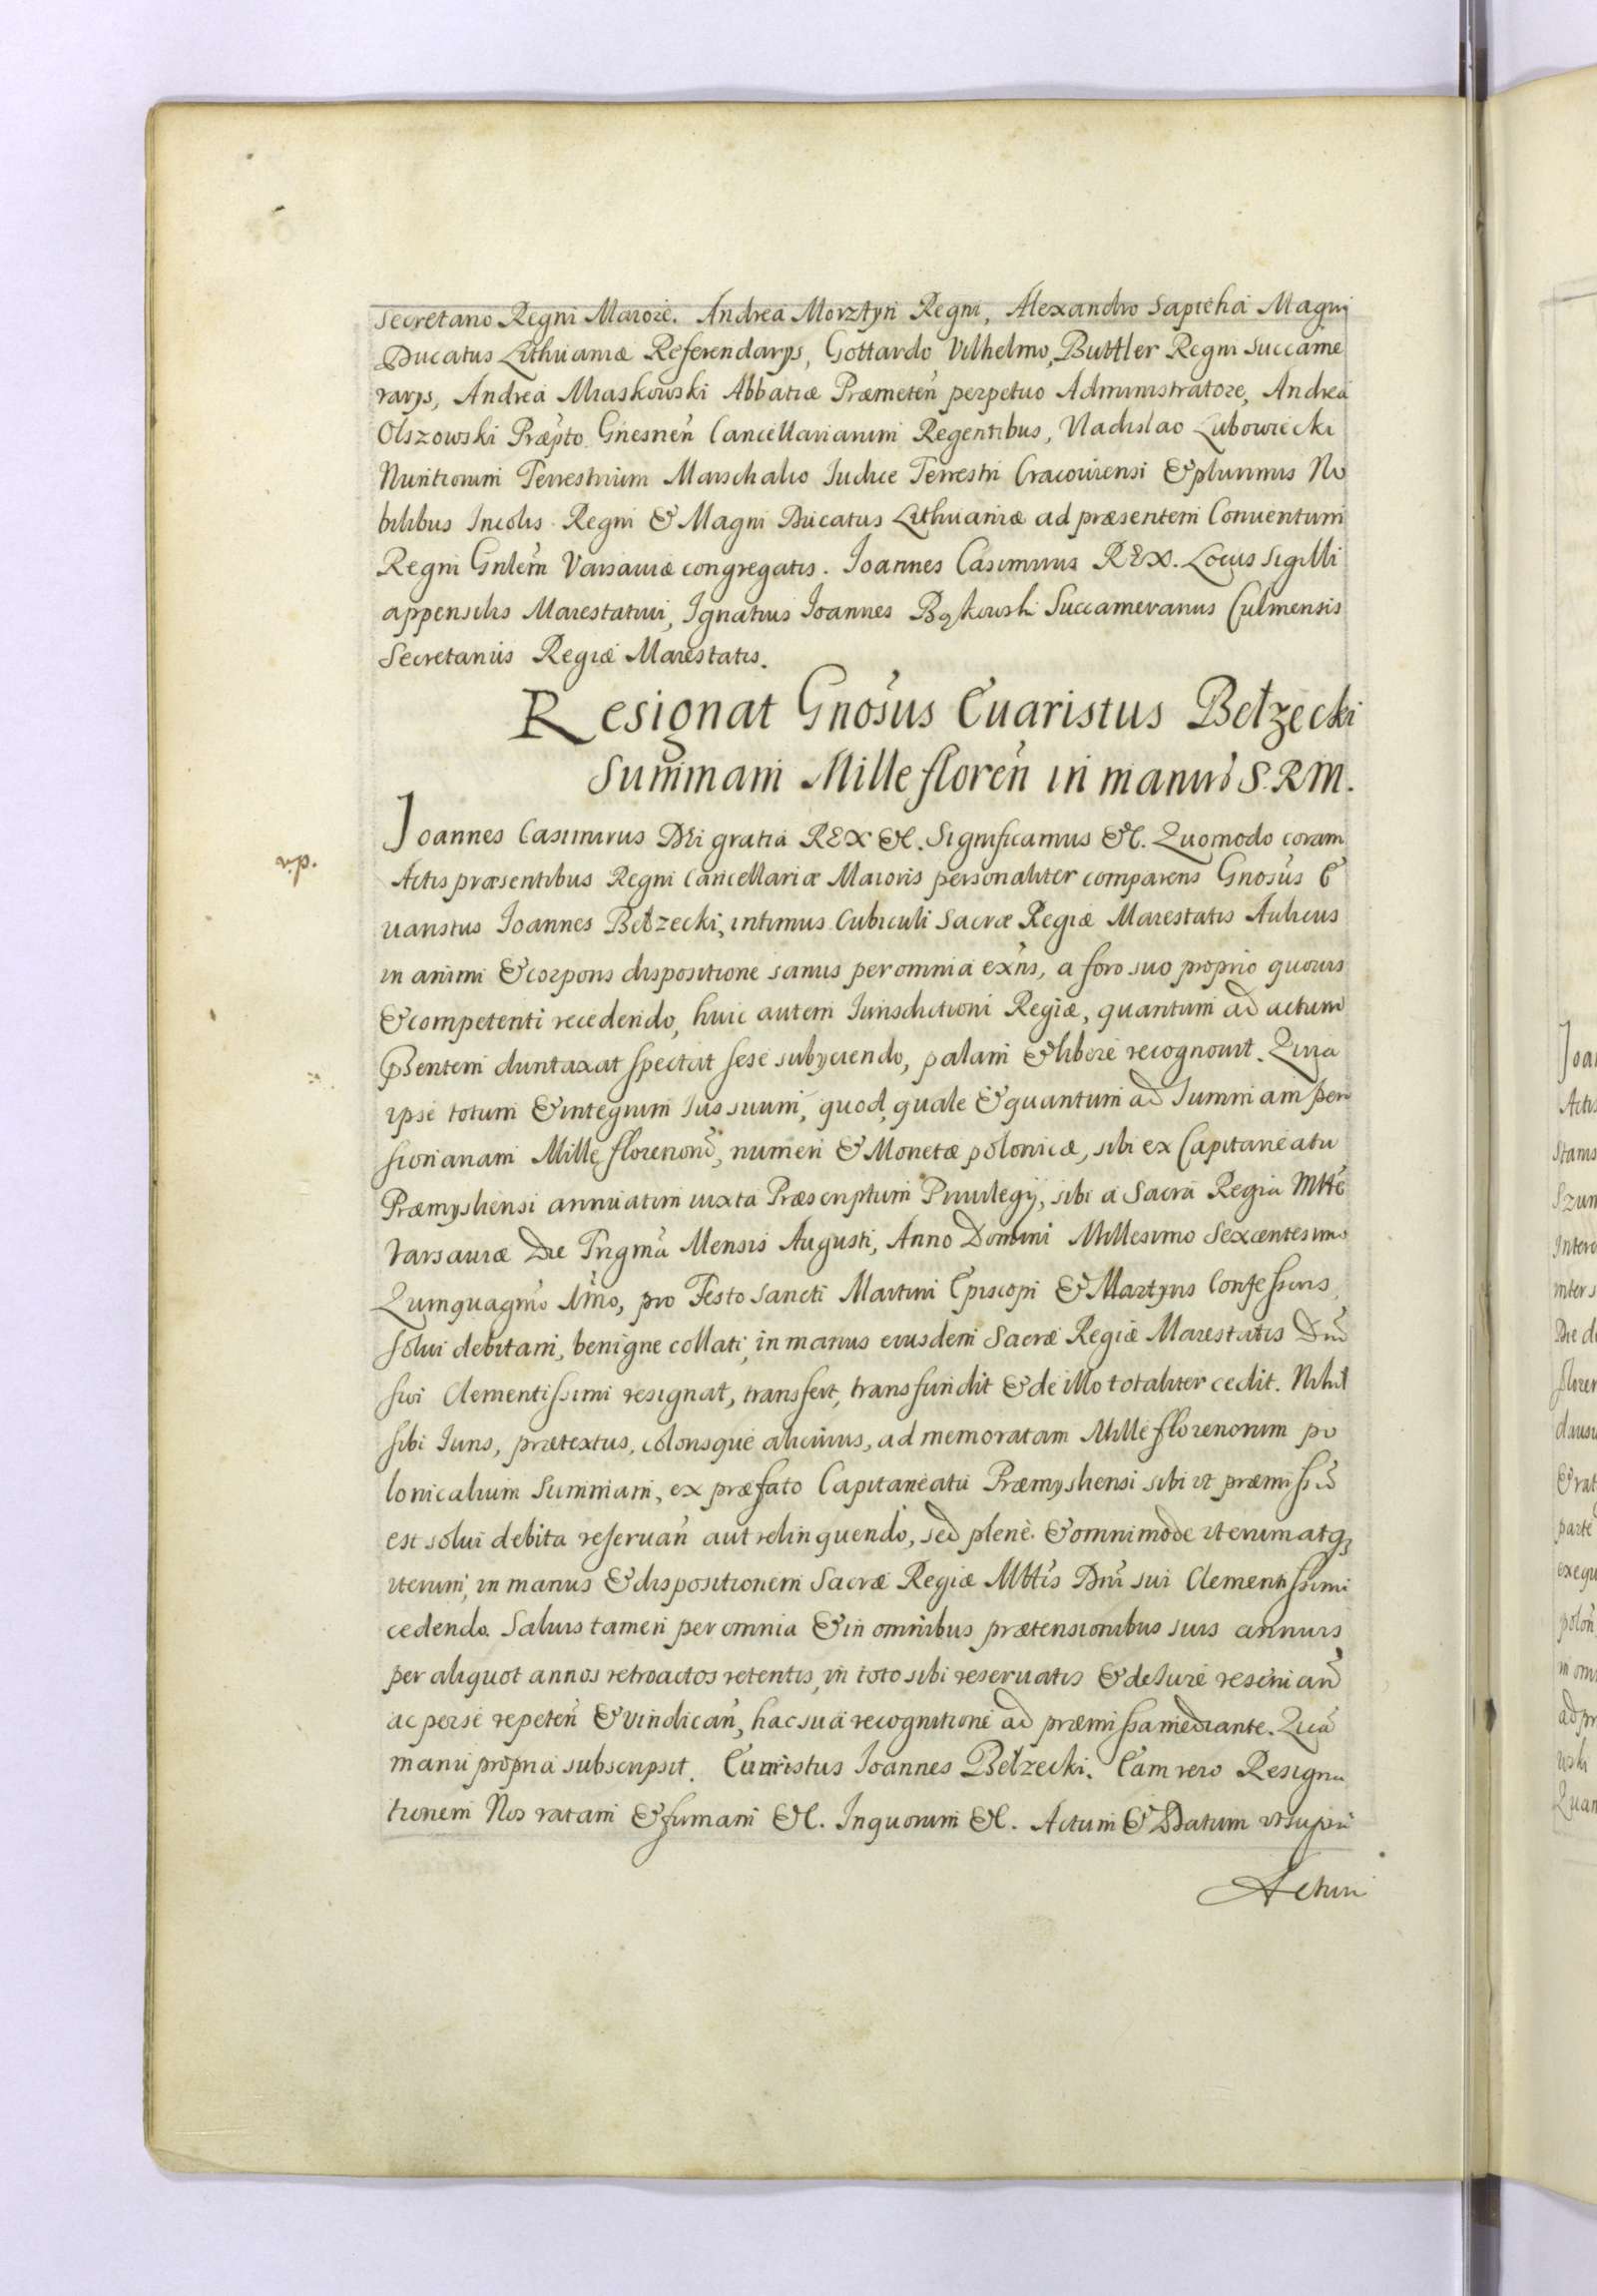 Secretario Regni Maiore. Andrea Morztyn Regni, Alexandro Sapieha Magni
Ducatus Lithuaniæ Referendarys, Gottardo Vilhelmo, Buttler Regni Succame
rarys, Andrea Miaskowski Abbatiæ Præmeten̄ perpetuo Administratore, Andrea
Olszowski Præpto Gnesnen̄ Cancellariarum Regentibus, Vladislao Lubowiecki
Nuntiorum Terrestrium Marschalio Iudice Terrestri Cracouiensi & plurimis No
bilibus Incolis Regni & Magni Ducatus Lithuaniæ ad præsentem Conuentum
Regni Gnlem̄ Varsauiæ congregatis. Ioannes Casimirus REX. Locus Sigilli
appensilis Maiestatiui, Ignatius Ioannes Bąkowski Succamerarius Culmensis
Secretarius Regiæ Maiestatis.
Resignat Gnosus Euaristus Bełzecki
Summam Mille floren̄ in manus S.R.M.
Ioannes Casimirus Dei gratia REX &c. Significamus &c. Quomodo coram
Actis præsentibus Regni Cancellariæ Maioris personaliter comparens Gnosus E
uaristus Ioannes Bełzecki, intimus Cubiculi Sacræ Regiæ Maiestatis Aulicus
in animi & corporis dispositione sanus per omnia exn̄s, a foro suo proprio quouis
& competenti recedendo, huic autem Iurisdictioni Regiæ, quantum ad actum
psentem duntaxat spectat sese subyciendo, palam & libere recognouit. Quia
ipse totum & integrum Ius suum, quod, quale & quantum ad Summam pen
sionariam Mille florenorū, numeri & Monetæ polonicæ, sibi ex Capitaneatu
Præmysliensi annuatim iuxta Præscriptum Priuilegij, sibi a Sacra Regia Mtte
Varsauiæ Die Trigma Mensis Augusti, Anno Domini Millesimo Sexcentesimo
Quinquagmo 1mo, pro Festo Sancti Martini Episcopi & Martyris Confessoris,
solui debitam, benigne collati, in manus eiusdem Sacræ Regiæ Maiestatis Dni
sui Clementissimi resignat, transfert, transfundit & de illo totaliter cedit. Nihil
sibi Iuris, prætextus, colorisque alicuius, ad memoratam Mille florenorum po
lonicalium Summam, ex præfato Capitaneatu Præmysliensi sibi vt præmissū
est solui debita reseruan̄ aut relinquendo, sed plenè & omnimode iterum atq3
iterum, in manus & dispositionem Sacræ Regiæ Mttis Dni sui Clementissimi
cedendo. Saluis tamen per omnia & in omnibus prætensionibus suis annuis
per aliquot annos retroactos retentis, in toto sibi reseruatis & de Iure
ac per se repeten̄ & vindican̄, hac sua recognitione ad præmissa mediante. Quā
manu propria subscripsit. Euaristus Ioannes Bełzecki. Eam vero Resigna
tionem Nos ratam & firmam &c. In quorum &c. Actum & Datum vt supra
Actum